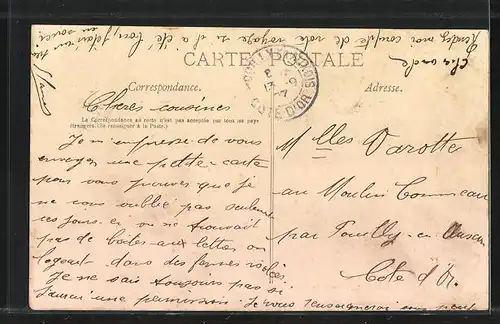 Rendez moi compte de votre voyage et s'il a été bon j'étais un peu
en souci
CARTE POSTALE
Correspondance.
La Correspondance au recto n'est pas acceptée par tous les pays
étrangers. (Se renseigner à la Poste.)
Chères cousines
Je m'empresse de vous
envoyer une petite carte
pour vous prouver que je
ne vous oublie pas seulement
ces jours-ci on ne trouvait
pas de boites aux lettres on
logeait dans des fermes
Je ne sais toujours pas si
j'aurai une permission. Je vous renseignerai
POUILLY-EN-AUXOIS
COTE D'OR
Adresse.
Mlles Varotte
au Moulin
par Pouilly-en-Auxois
Côte d'Or.